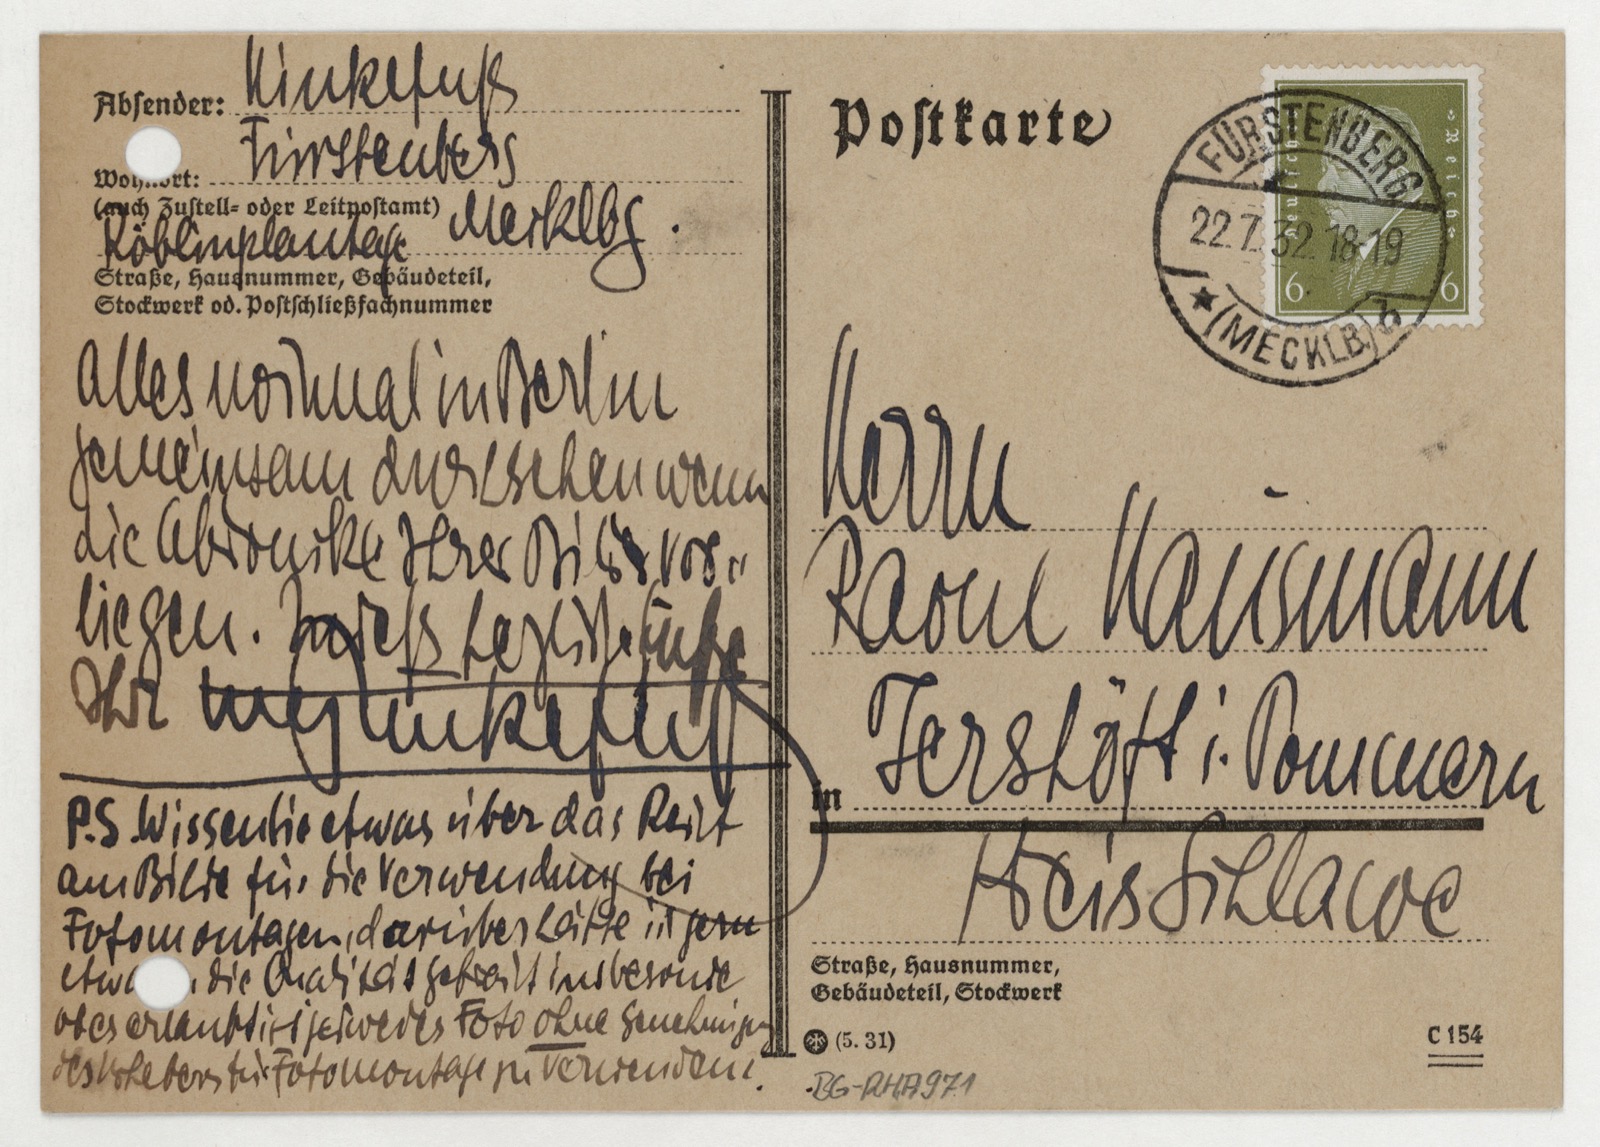 Absender: Kinkefuß
Fürstenberg
Wohnort:
(auch Zustell- oder Leitpostamt) Mecklbg.
Röblinplantage
Straße, Hausnummer, Gebäudeteil,
Stockwerk od. Postschließfachnummer
Alles normal in Berlin
gemeinsam durchsehen wenn
die Abdrucke Ihrer Bilder vor-
liegen.
Ihr Kinkefuß
P.S. Wissen Sie etwas über das Recht
am Bilde für die Verwendung bei
Fotomontagen, darüber hätte ich gern
etwas, die Qualität insbesondre
ob es erlaubt ist jedwedes Foto ohne Genehmigung
des Urhebers für Fotomontage zu verwenden.
Postkarte
FÜRSTENBERG
22.7.32.18-19
★ (MECKLB.) b
Deutsches Reich
6 6
Herrn
Raoul Hausmann
in Jershöft i. Pommern
Kreis Schlawe
Straße, Hausnummer,
Gebäudeteil, Stockwerk
(5. 31)
C 154
BG-RHA 971